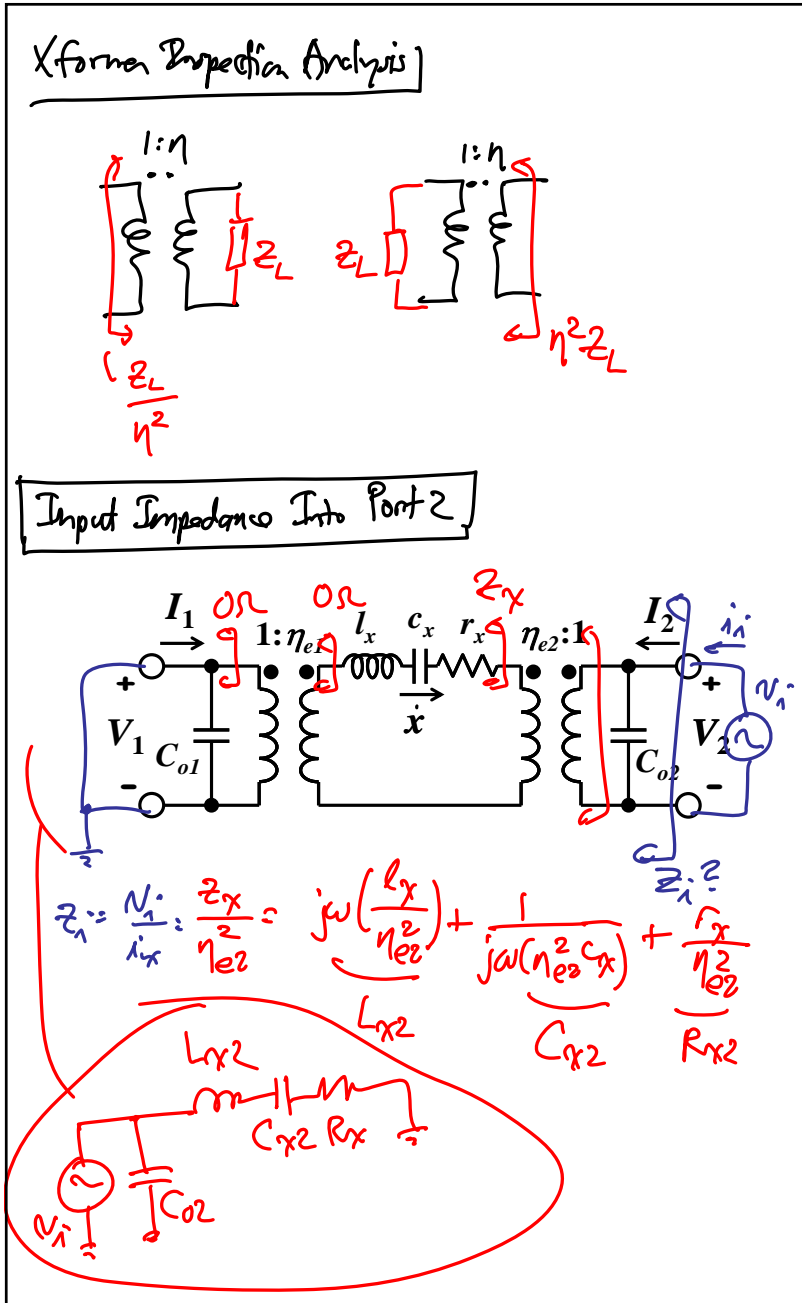 Xformer Inspection Analysis
1:η 1:η
Z_L Z_L
Z_L/η² η²Z_L
Input Impedance Into Port 2
I_1 0Ω 0Ω Z_x I_2 i_i
1:η_e1 l_x c_x r_x η_e2:1
+ + v_i
V_1 C_o1 ẋ C_o2 V_2
- -
Z_i?
Z_i = v_i/i_x = Z_x/η_e2² = jω(l_x/η_e2²) + 1/jω(η_e2² c_x) + r_x/η_e2²
L_x2 C_x2 R_x2
L_x2
C_x2 R_x
v_i C_o2